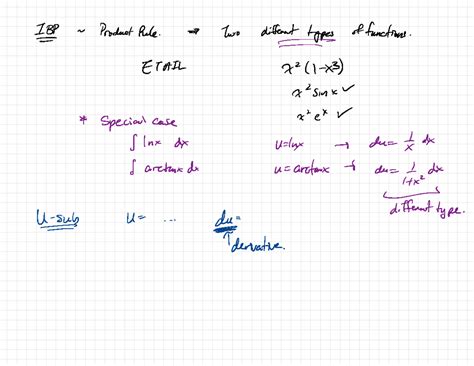 IBP ~ Product Rule. → Two different types of functions.
ETAIL x²(1-x3)
x² sin x ✓
x² eˣ ✓
* Special case
∫ lnx dx u=lnx → du= 1/x dx
∫ arctanx dx u=arctanx → du= 1/1+x² dx
different type.
U-sub u= ... du=
↑derivative.